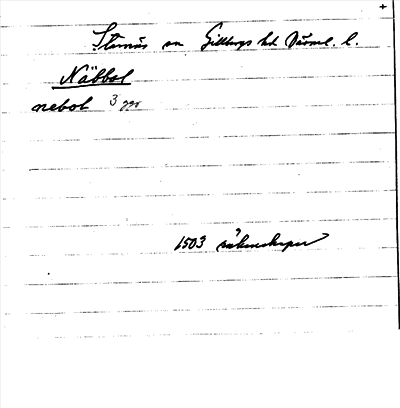 +
Stavnäs sn Gillbergs hd Värml. l.
Näbbol
nebol 3 ggr
1503 räkenskaper